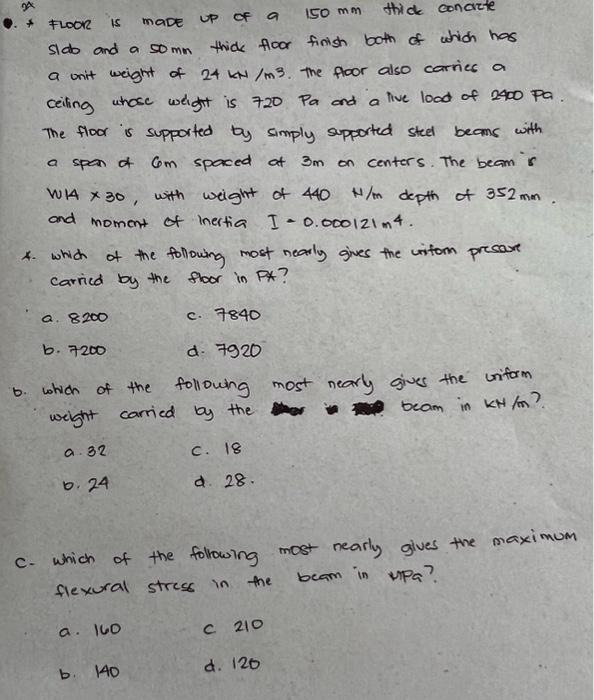 * FLOOR is made up of a 150 mm thick concrete
slab and a 50 mm thick floor finish both of which has
a unit weight of 24 kN/m3. The floor also carries a
ceiling whose weight is 720 Pa and a live load of 2400 Pa.
The floor is supported by simply supported steel beams with
a span of 6m spaced at 3m on centers. The beam is
W14 x 30, with weight of 440 N/m depth of 352 mm.
and moment of inertia I = 0.000121 m4.
A. which of the following most nearly gives the uniform pressure
carried by the floor in PA?
a. 8200 c. 7840
b. 7200 d. 7920
b. which of the following most nearly gives the uniform
weight carried by the beam in kN/m?
a. 32 c. 18
b. 24 d. 28.
C- which of the following most nearly gives the maximum
flexural stress in the beam in MPa?
a. 160 c 210
b. 140 d. 120